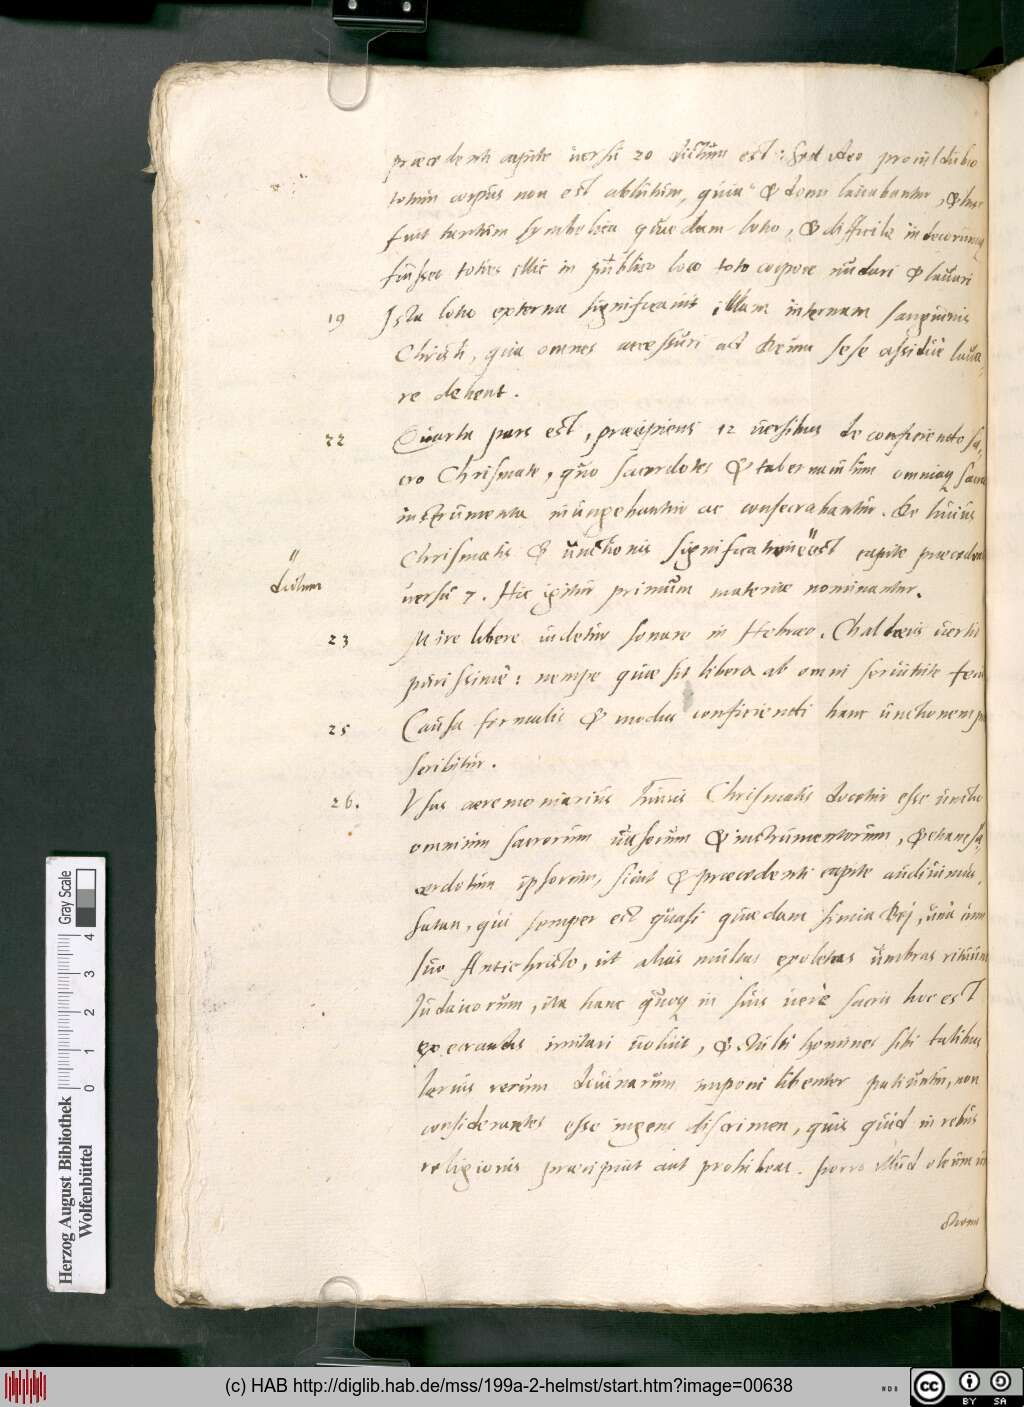 praecedenti capite versu 20 dictum est: Sed ideo procul dubio
totum corpus non est ablutum, quia & domi lavabantur, & haec
fuit tantum symbolica quaedam lotio, & difficile indecorumq
fuisset toties illic in publico loco toto corpore nudari & lavari
19 Ista lotio externa significavit illam internam sanguinis
Christi, qua omnes accessuri ad Deum sese assidue lava-
re debent.
22 Quarta pars est, praecipiens 12 versibus de conficiendo sa-
cro Chrismate, quo sacerdotes & tabernaculum omniaq sacra
instrumenta inungebantur ac consecrabantur. De huius
Chrismatis & unctionis significatione " est capite praecedenti
" dictum
versu 7. Hic igitur primum materiae nominantur.
23 Mire libere videtur sonare in Hebraeo. Chaldaeus vertit
purissime: nempe quae sit libera ab omni
25 Causa formalis & modus conficiendi hanc unctionem
scribitur.
26. Usus caeremoniarius huius Chrismatis docetur esse unctio
omnium sacrorum vasorum & instrumentorum, & etiam sa-
cerdotum ipsorum, sicut & praecedenti capite audivimus.
Satan, qui semper est quasi quaedam simia Dei, una cum
suo Antichristo, ut alias multas exoletas umbras rituum
Judaicorum, ita hanc quoq in suis vere sacris hoc est
execrandis imitari voluit, & stulti homines sibi talibus
larvis rerum divinarum imponi libenter patiuntur, non
considerantes esse ingens discrimen, quis quid in rebus
religionis praecipiat aut prohibeat. Porro illud oleum
Gray Scale
0 1 2 3 4
Herzog August Bibliothek
Wolfenbüttel
(c) HAB http://diglib.hab.de/mss/199a-2-helmst/start.htm?image=00638
cc BY SA